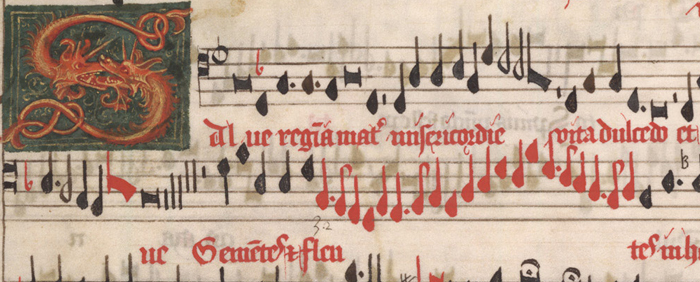 Salue regīa mat᷑ misericordie vita dulcedo et
ue Gemētes ⁊ flen tes in h